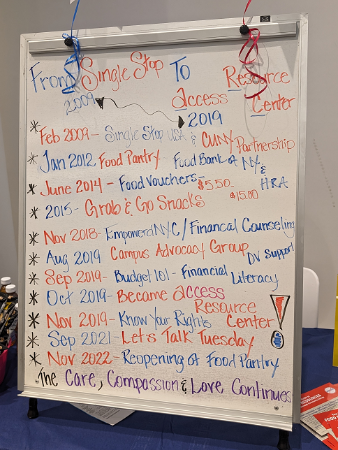 From Single Stop To Resource
2009 access Center
2019
* Feb 2009 - Single Stop USA & CUNY Partnership
* Jan 2012 Food Pantry - Food Bank of NY & HRA
* June 2014 - Food Vouchers - $5.50 $15.00
* 2015 - Grab & Go Snacks
* Nov 2018 - EmpoweredNYC/Financial Counseling
* Aug 2019 Campus Advocacy Group DV Support
* Sep 2019 - Budget 101 - Financial Literacy
* Oct 2019 - Became access Resource Center
* Nov 2019 - Know Your Rights
* Sep 2021 - Let's Talk Tuesday
* Nov 2022 - Reopening of Food Pantry
The Care, Compassion & Love Continues